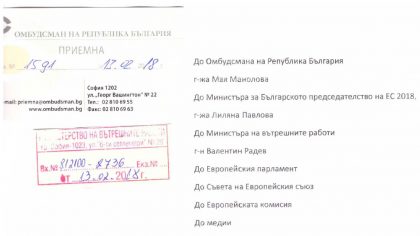 ОМБУДСМАН НА РЕПУБЛИКА БЪЛГАРИЯ
ПРИЕМНА
1591 13.02 18
София 1202
ул. „Георг Вашингтон" № 22
e-mail: priemna@ombudsman.bg Тел.: 02 810 69 55
www.ombudsman.bg Факс: 02 810 69 63
МИНИСТЕРСТВО НА ВЪТРЕШНИТЕ
гр. София-1029, ул. "6-ти септември" № 29
Вх.№ 812100-2736 Екз.№
от 13.02.2018г.
До Омбудсмана на Република България
г-жа Мая Манолова
До Министъра за Българското председателство на ЕС 2018,
г-жа Лиляна Павлова
До Министъра на вътрешните работи
г-н Валентин Радев
До Европейския парламент
До Съвета на Европейския съюз
До Европейската комисия
До медии